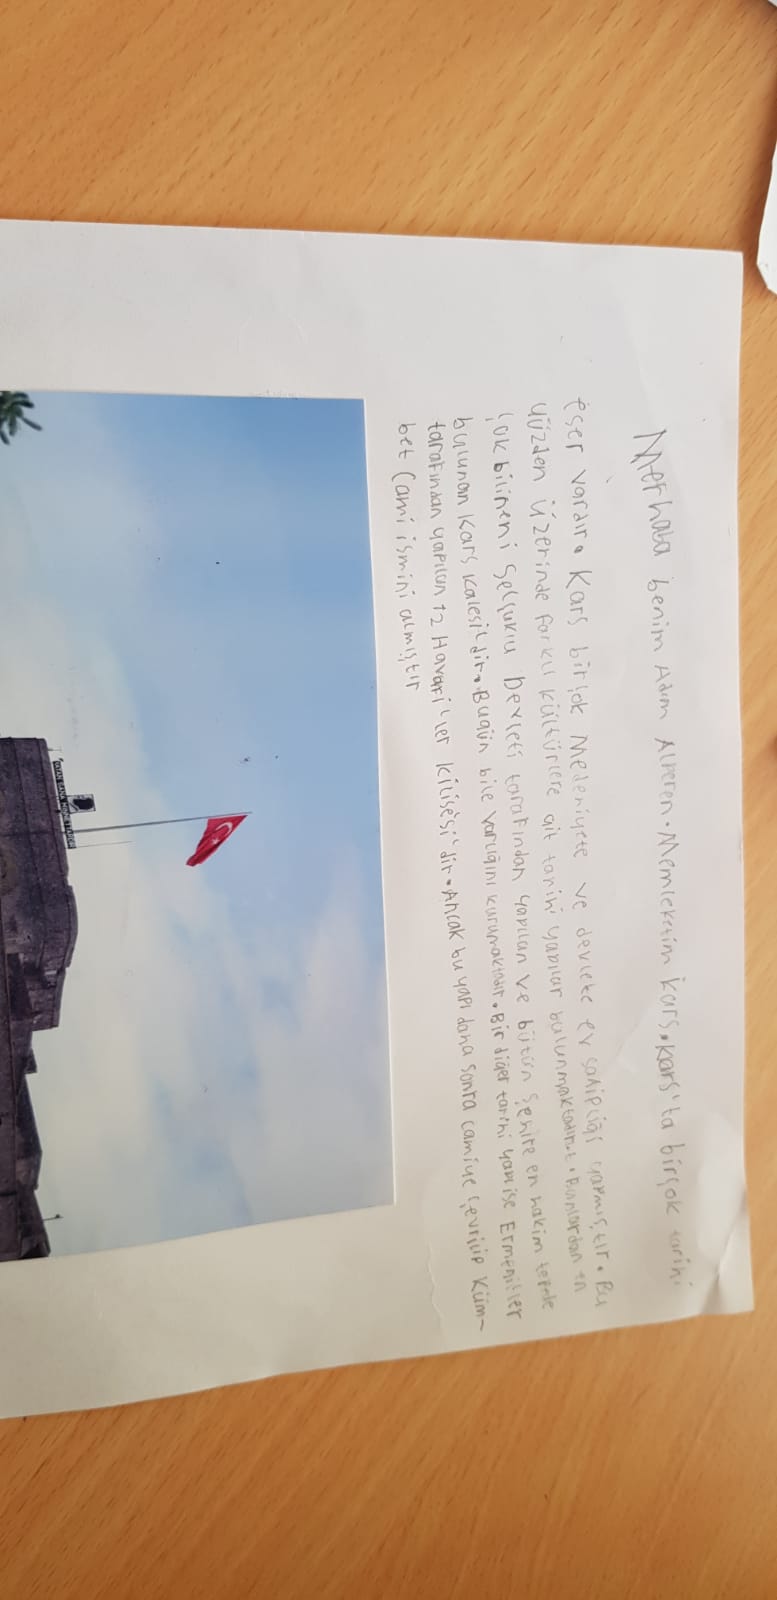 Merhaba benim Adım Alperen. Memleketim Kars. Kars'ta birçok tarihi
eser vardır. Kars birçok Medeniyete ve devlete ev sahipliği yapmıştır. Bu
yüzden üzerinde farklı kültürlere ait tarihi yapılar bulunmaktadır. Bunlardan en
çok bilineni Selçuklu Devleti tarafından yapılan ve bütün şehre en hakim tepede
bulunan Kars Kalesi'dir. Bugün bile varlığını korumaktadır. Bir diğer tarihi yapı ise Ermeniler
tarafından yapılan 12 Havariler Kilisesi'dir. Ancak bu yapı daha sonra camiye çevrilip Küm-
bet Cami ismini almıştır
VATAN SANA MİNNETTARDIR